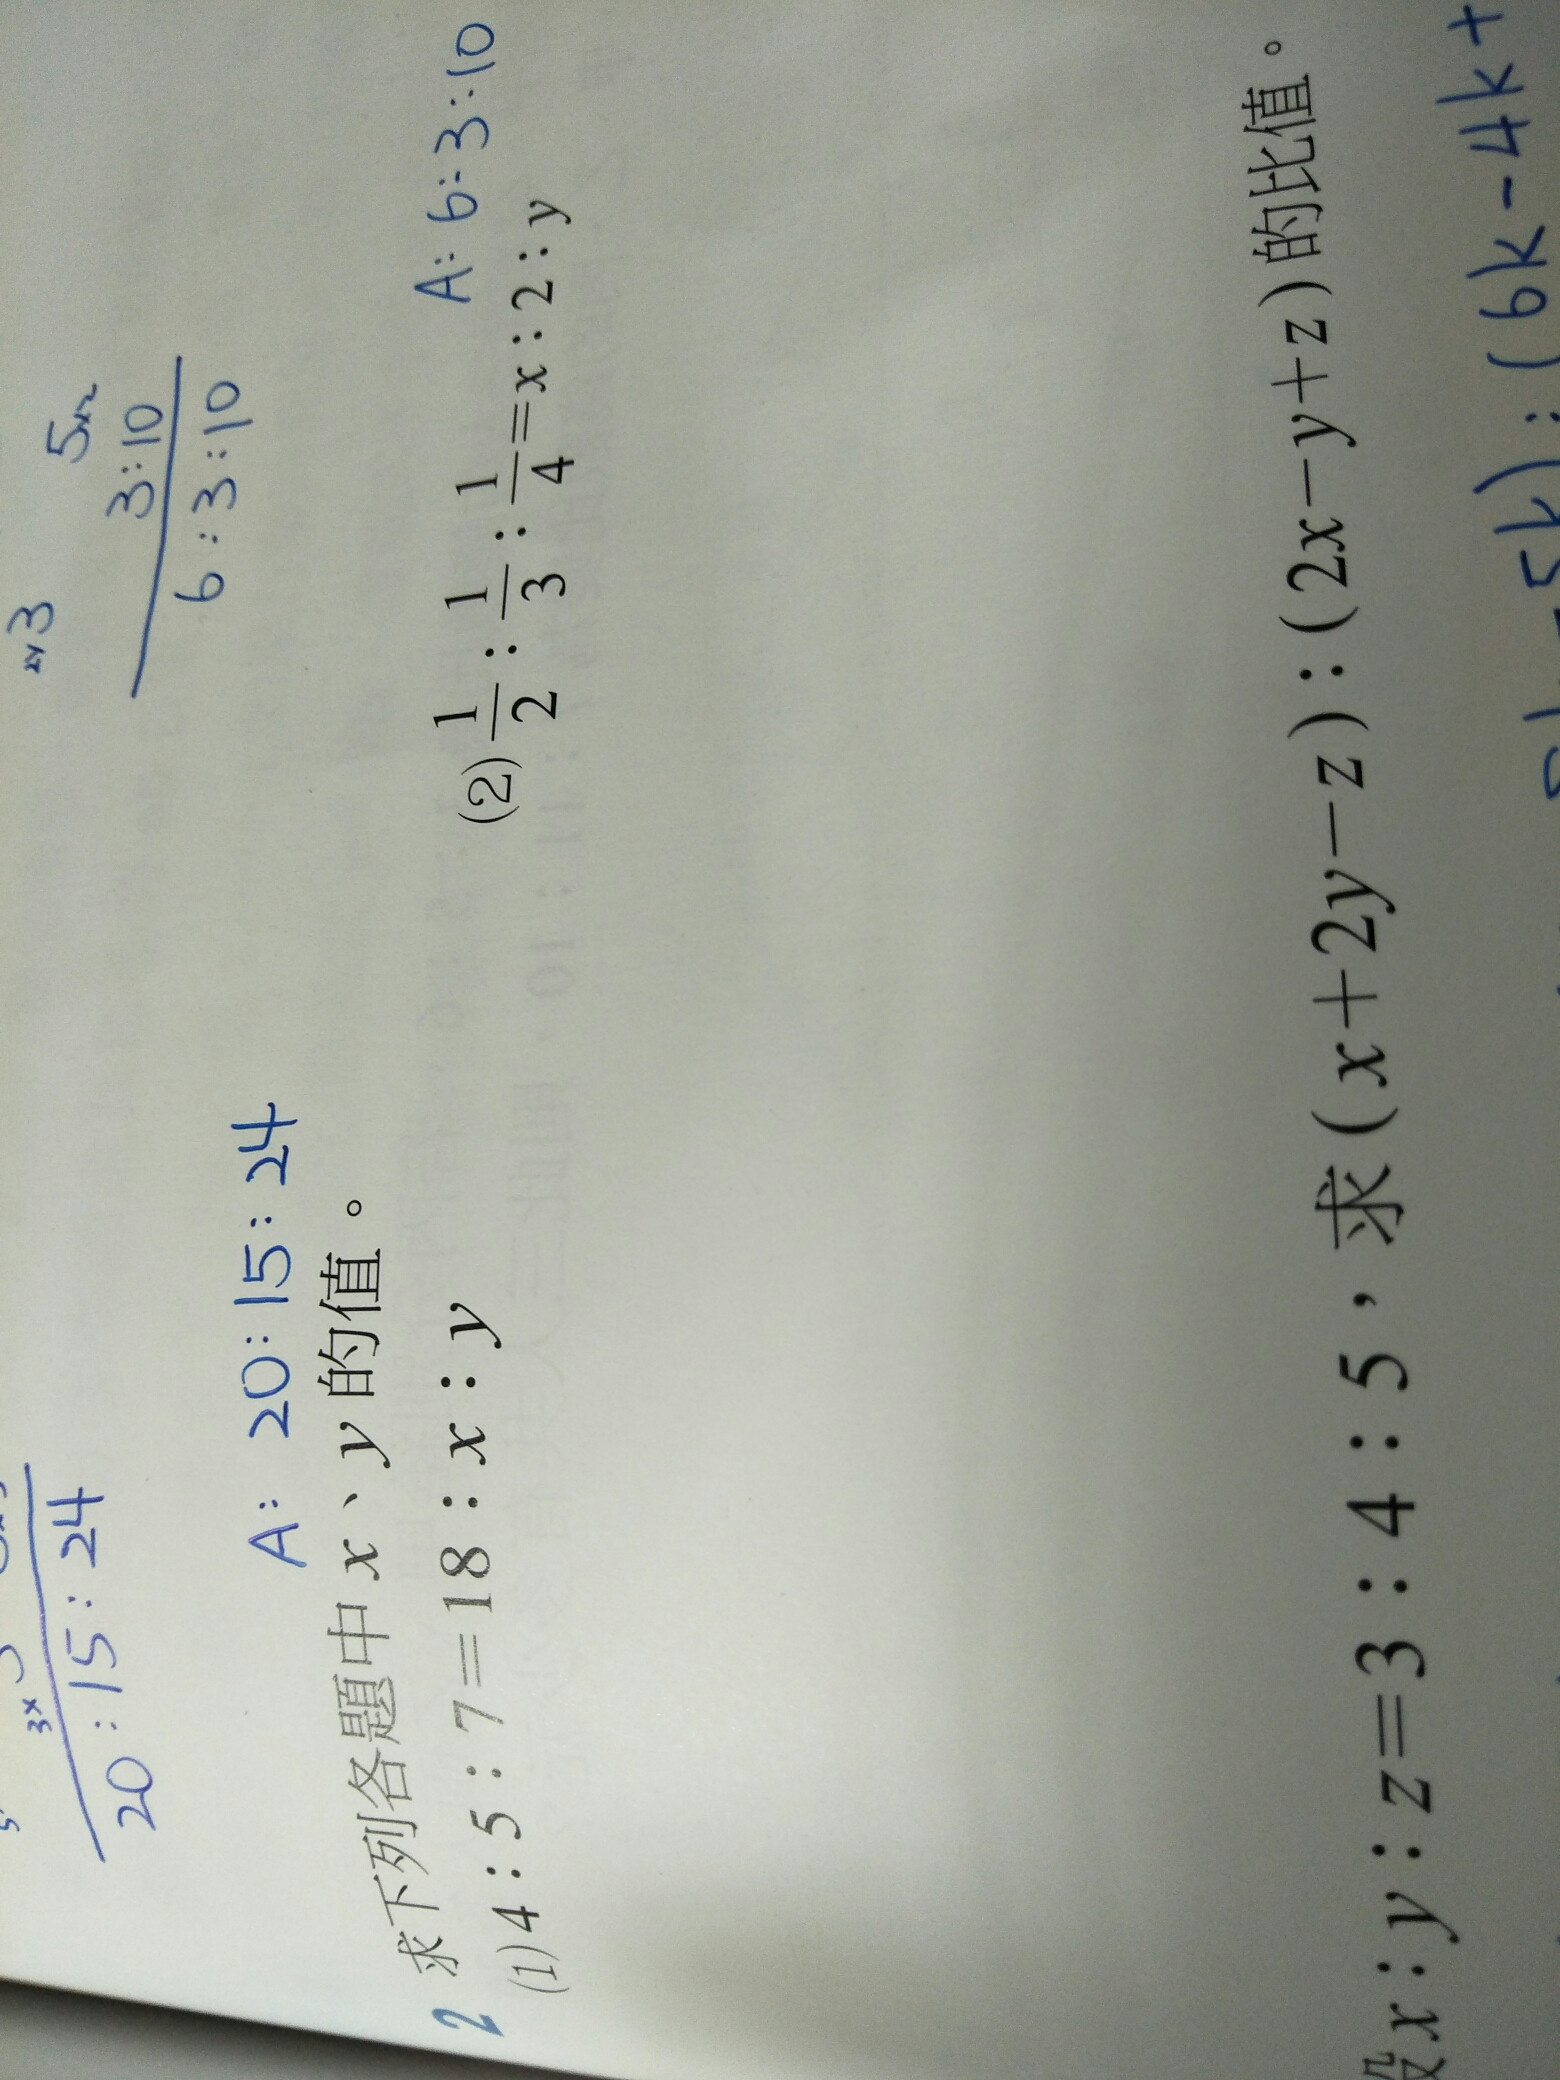 3:10
6:3:10
20:15:24
A: 20:15:24
A: 6:3:10
2 求下列各題中 x、y 的值。
(1) 4:5:7=18:x:y
(2) 1/2:1/3:1/4=x:2:y
x:y:z=3:4:5,求(x+2y-z):(2x-y+z)的比值。
5k):(6k-4k+